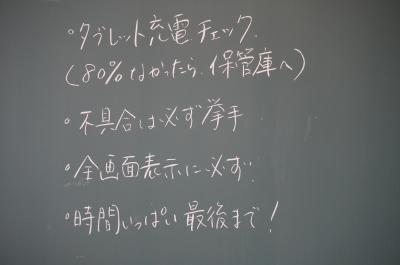 。タブレット充電チェック.
(80%なかったら、保管庫へ)
。不具合は必ず挙手
。全画面表示に必ず!
。時間いっぱい最後まで!